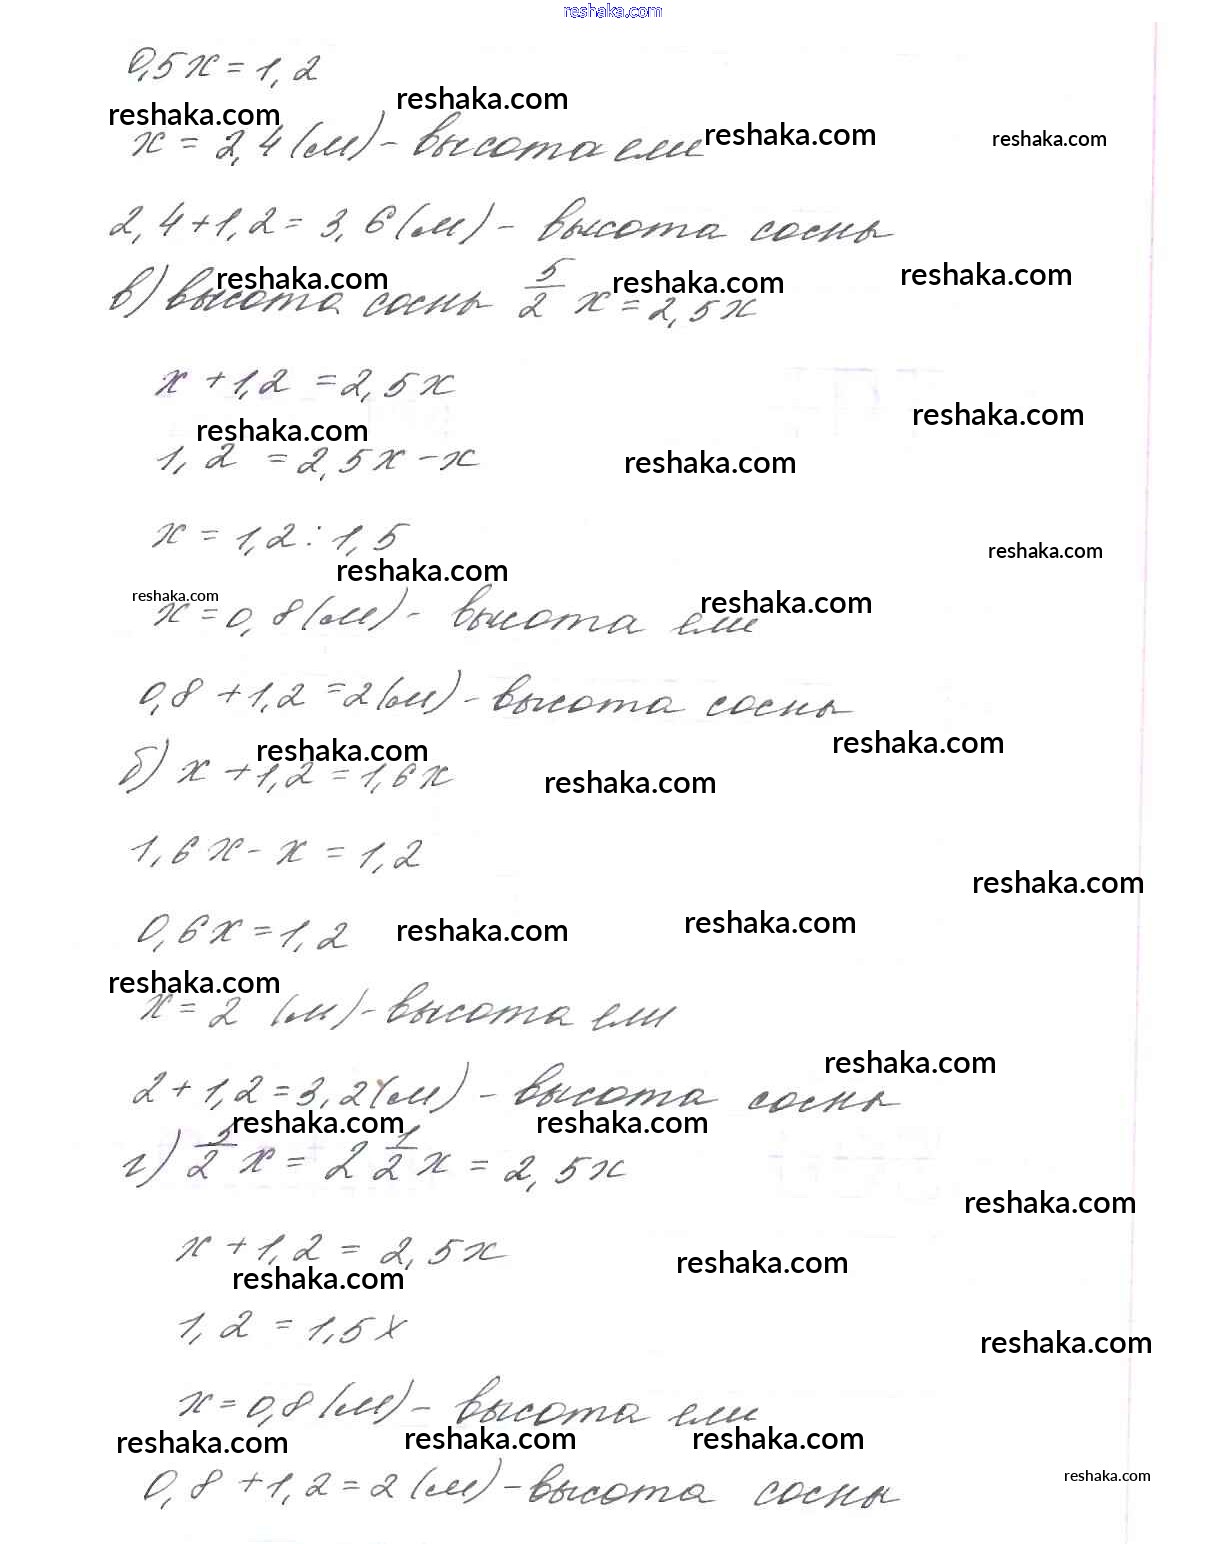 reshaka.com
0,5x = 1,2
reshaka.com reshaka.com
x = 2,4 (м) - высота ели reshaka.com reshaka.com
2,4 + 1,2 = 3,6 (м) - высота сосны
reshaka.com reshaka.com reshaka.com
в) высота сосны 5/2 x = 2,5x
x + 1,2 = 2,5x
reshaka.com reshaka.com
1,2 = 2,5x - x reshaka.com
x = 1,2 : 1,5
reshaka.com reshaka.com
reshaka.com reshaka.com
x = 0,8 (м) - высота ели
0,8 + 1,2 = 2 (м) - высота сосны
reshaka.com reshaka.com
б) x + 1,2 = 1,6x reshaka.com
1,6x - x = 1,2
reshaka.com
0,6x = 1,2 reshaka.com reshaka.com
reshaka.com
x = 2 (м) - высота ели
reshaka.com
2 + 1,2 = 3,2 (м) - высота сосны
reshaka.com reshaka.com
г) 5/2 x = 2 1/2 x = 2,5x
reshaka.com
x + 1,2 = 2,5x
reshaka.com reshaka.com
1,2 = 1,5x
reshaka.com
x = 0,8 (м) - высота ели
reshaka.com reshaka.com reshaka.com
0,8 + 1,2 = 2 (м) - высота сосны
reshaka.com